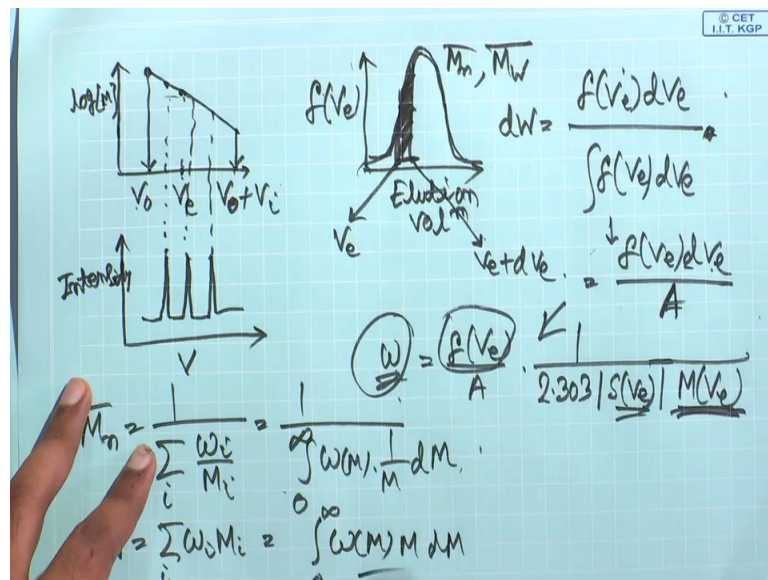 © CET
I.I.T. KGP
log(M)
V₀ Vₑ V₀+Vᵢ
Intensity
V
f(Vₑ)
M̄ₙ, M̄w
Elution
volⁿ
Vₑ
Vₑ+dVₑ
dW = f(Vₑ)dVₑ / ∫f(Vₑ)dVₑ
= f(Vₑ)dVₑ / A
ω = f(Vₑ)/A · 1 / 2.303 |S(Vₑ)| M(Vₑ)
M̄ₙ = 1 / Σᵢ ωᵢ/Mᵢ = 1 / ∫₀^∞ ω(M)·1/M dM
= Σᵢ ωᵢMᵢ = ∫₀^∞ ω(M) M dM